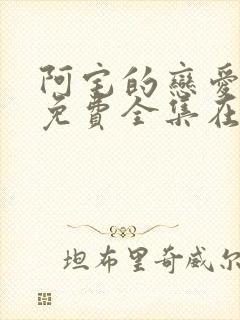 阿宅的戀愛
免費全集在
坦布里奇威尔